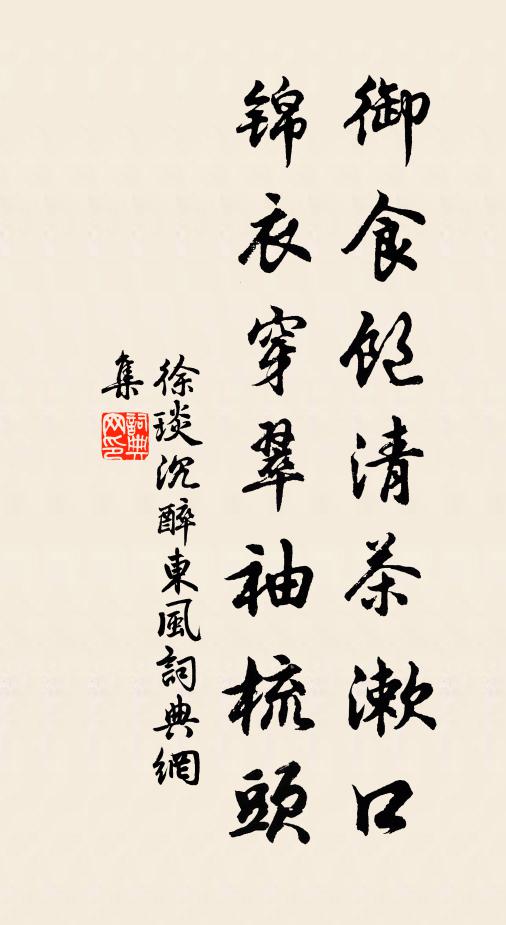 御食飽清茶漱口
錦衣穿翠袖梳頭
徐琰沉醉東風詞典網
集
詞典
网印